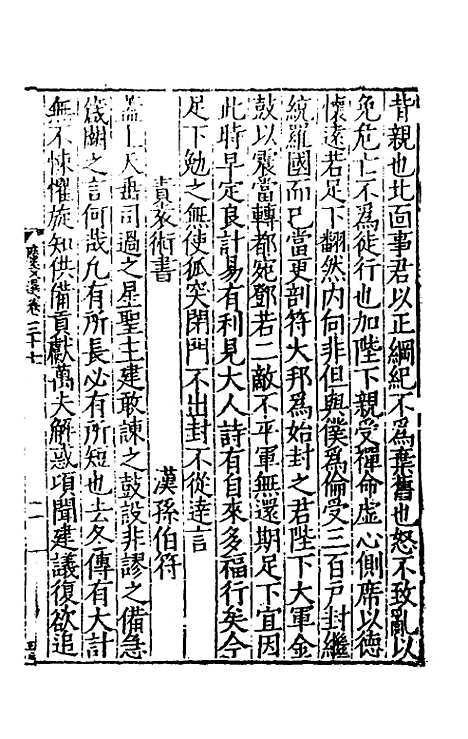 昔親也北面事君以正綱紀不爲棄舊也怒不致亂以
免危亡不爲徙行也加陛下親受禪命虛心側席以德
懷遠若足下翻然內向非但與僕爲倫受三百戶封繼
統羅國而已當更剖符大邦爲始封之君陛下大軍金
鼓以震當轉都宛鄧若二敵不平軍無還期足下宜因
此時早定良計易有利見大人詩有自來多福行矣今
足下勉之無使狐突閉門不出封不從達言
責袁術書 漢孫伯符
蓋上天垂司過之星聖主建敢諫之鼓設非謬之備急
箴闕之言何哉凡有所長必有所短也去冬傳有大計
無不悚懼旋知供備貢獻萬夫解惑項聞建議復欲追
文選卷三十七